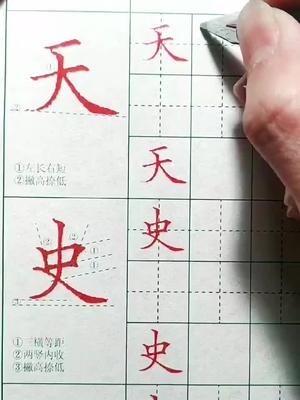 天 天
①左长右短
②撇高捺低
天
史 史
①三横等距
②两竖内收
③撇高捺低
史